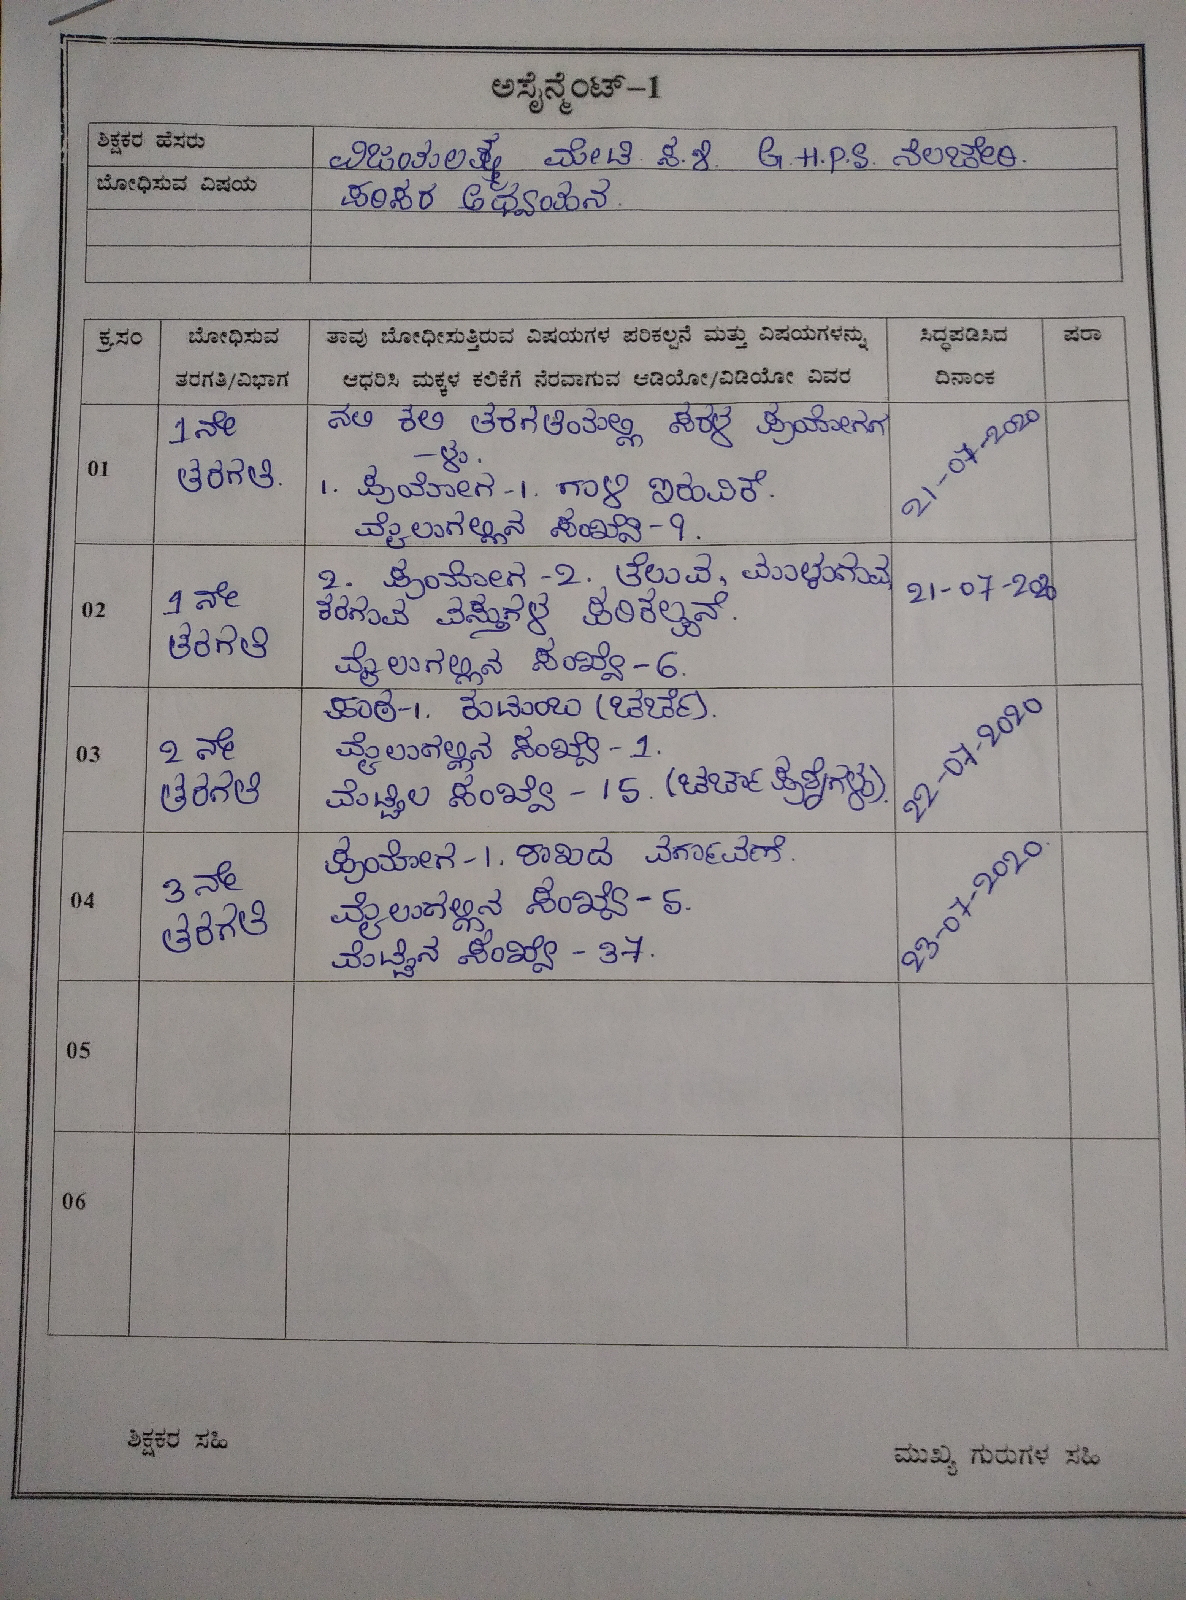 ಅಸೈನ್ಮೆಂಟ್-1
ಶಿಕ್ಷಕರ ಹೆಸರು
ವಿಜಯಲಕ್ಷ್ಮಿ ಮೇಟಿ ಸ.ಶಿ. G.H.P.S. ನೆಲಜೇರಿ.
ಬೋಧಿಸುವ ವಿಷಯ
ಪರಿಸರ ಅಧ್ಯಯನ.
ಕ್ರ.ಸಂ
ಬೋಧಿಸುವ
ತರಗತಿ/ವಿಭಾಗ
ತಾವು ಬೋಧೀಸುತ್ತಿರುವ ವಿಷಯಗಳ ಪರಿಕಲ್ಪನೆ ಮತ್ತು ವಿಷಯಗಳನ್ನು
ಆಧರಿಸಿ ಮಕ್ಕಳ ಕಲಿಕೆಗೆ ನೆರವಾಗುವ ಆಡಿಯೋ/ವಿಡಿಯೋ ವಿವರ
ಸಿದ್ಧಪಡಿಸಿದ
ದಿನಾಂಕ
ಷರಾ
01
1ನೇ
ತರಗತಿ.
ನಲಿ ಕಲಿ ತರಗತಿಯಲ್ಲಿ ಸರಳ ಪ್ರಯೋಗಗ
-ಳು.
1. ಪ್ರಯೋಗ-1. ಗಾಳಿ ಇರುವಿಕೆ.
ಮೈಲುಗಲ್ಲಿನ ಸಂಖ್ಯೆ-9.
21-07-2020
02
1 ನೇ
ತರಗತಿ
2. ಪ್ರಯೋಗ-2. ತೇಲುವ, ಮುಳುಗುವ
ಕರಗುವ ವಸ್ತುಗಳ ಪರಿಕಲ್ಪನೆ.
ಮೈಲುಗಲ್ಲಿನ ಸಂಖ್ಯೆ-6.
21-07-2020
03
2 ನೇ
ತರಗತಿ
ಪಾಠ-1. ಕುಟುಂಬ (ಚರ್ಚೆ).
ಮೈಲುಗಲ್ಲಿನ ಸಂಖ್ಯೆ-1.
ಮೆಟ್ಟಿಲ ಸಂಖ್ಯೆ-15. (ಚರ್ಚಾ ಪ್ರಶ್ನೆಗಳು).
22-07-2020
04
3 ನೇ
ತರಗತಿ
ಪ್ರಯೋಗ-1. ಶಾಖದ ವರ್ಗಾವಣೆ.
ಮೈಲುಗಲ್ಲಿನ ಸಂಖ್ಯೆ-5.
ಮೆಟ್ಟಿಲಿನ ಸಂಖ್ಯೆ-37.
23-07-2020
05
06
ಶಿಕ್ಷಕರ ಸಹಿ
ಮುಖ್ಯ ಗುರುಗಳ ಸಹಿ